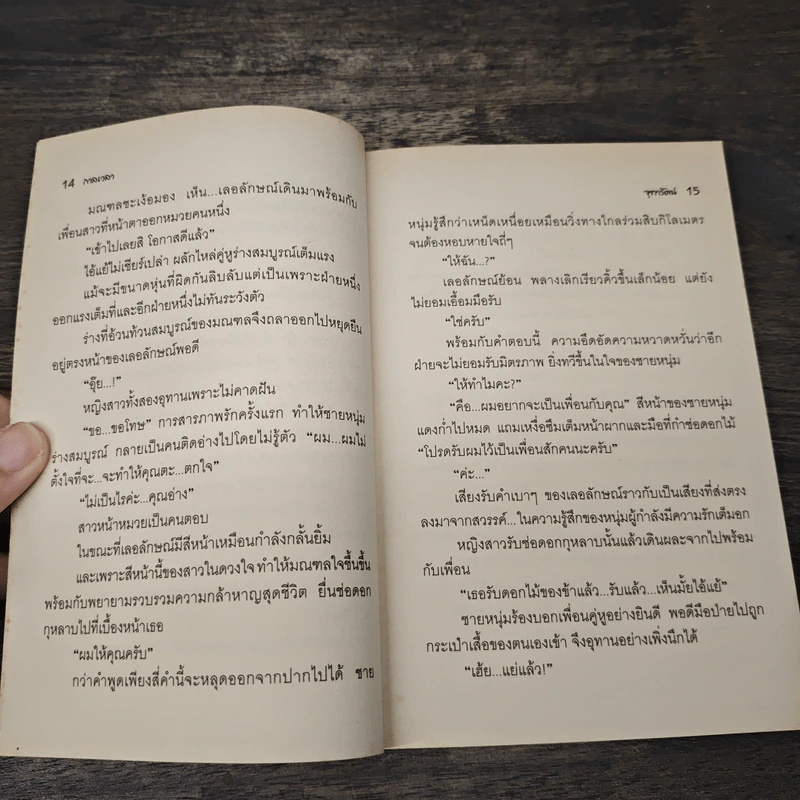 14 กาลเวลา
มณฑลชะเง้อมอง เห็น...เลอลักษณ์เดินมาพร้อมกับ
เพื่อนสาวที่หน้าตาออกหมวยคนหนึ่ง
“เข้าไปเลยสิ โอกาสดีแล้ว”
ไอ้แย้ไม่เชียร์เปล่า ผลักไหล่คู่หูร่างสมบูรณ์เต็มแรง
แม้จะมีขนาดหุ่นที่ผิดกันลิบลับแต่เป็นเพราะฝ่ายหนึ่ง
ออกแรงเต็มที่และอีกฝ่ายหนึ่งไม่ทันระวังตัว
ร่างที่อ้วนท้วนสมบูรณ์ของมณฑลจึงถลาออกไปหยุดยืน
อยู่ตรงหน้าของเลอลักษณ์พอดี
“อุ๊ย...!”
หญิงสาวทั้งสองอุทานเพราะไม่คาดฝัน
“ขอ...ขอโทษ” การสารภาพรักครั้งแรก ทำให้ชายหนุ่ม
ร่างสมบูรณ์ กลายเป็นคนติดอ่างไปโดยไม่รู้ตัว “ผม...ผมไม่
ตั้งใจที่จะ...จะทำให้คุณตะ...ตกใจ”
“ไม่เป็นไรค่ะ...คุณอ่าง”
สาวหน้าหมวยเป็นคนตอบ
ในขณะที่เลอลักษณ์มีสีหน้าเหมือนกำลังกลั้นยิ้ม
และเพราะสีหน้านี้ของสาวในดวงใจ ทำให้มณฑลใจชื้นขึ้น
พร้อมกับพยายามรวบรวมความกล้าหาญสุดชีวิต ยื่นช่อดอก
กุหลาบไปที่เบื้องหน้าเธอ
“ผมให้คุณครับ”
กว่าคำพูดเพียงสี่คำนี้จะหลุดออกจากปากไปได้ ชาย
15
หนุ่มรู้สึกว่าเหน็ดเหนื่อยเหมือนวิ่งทางไกลร่วมสิบกิโลเมตร
จนต้องหอบหายใจถี่ๆ
“ให้ฉัน...?”
เลอลักษณ์ย้อน พลางเลิกเรียวคิ้วขึ้นเล็กน้อย แต่ยัง
ไม่ยอมเอื้อมมือรับ
“ใช่ครับ”
พร้อมกับคำตอบนี้ ความอึดอัดความหวาดหวั่นว่าอีก
ฝ่ายจะไม่ยอมรับมิตรภาพ ยิ่งทวีขึ้นในใจของชายหนุ่ม
“ให้ทำไมคะ?”
“คือ...ผมอยากจะเป็นเพื่อนกับคุณ” สีหน้าของชายหนุ่ม
แดงก่ำไปหมด แถมเหงื่อซึมเต็มหน้าผากและมือที่กำช่อดอกไม้
“โปรดรับผมไว้เป็นเพื่อนสักคนนะครับ”
“ค่ะ...”
เสียงรับคำเบาๆ ของเลอลักษณ์ราวกับเป็นเสียงที่ส่งตรง
ลงมาจากสวรรค์...ในความรู้สึกของหนุ่มผู้กำลังมีความรักเต็มอก
หญิงสาวรับช่อดอกกุหลาบนั้นแล้วเดินผละจากไปพร้อม
กับเพื่อน
“เธอรับดอกไม้ของข้าแล้ว...รับแล้ว...เห็นมั้ยไอ้แย้”
ชายหนุ่มร้องบอกเพื่อนคู่หูอย่างยินดี พอดีมือป่ายไปถูก
กระเป๋าเสื้อของตนเองเข้า จึงอุทานอย่างเพิ่งนึกได้
“เฮ้ย...แย่แล้ว!”